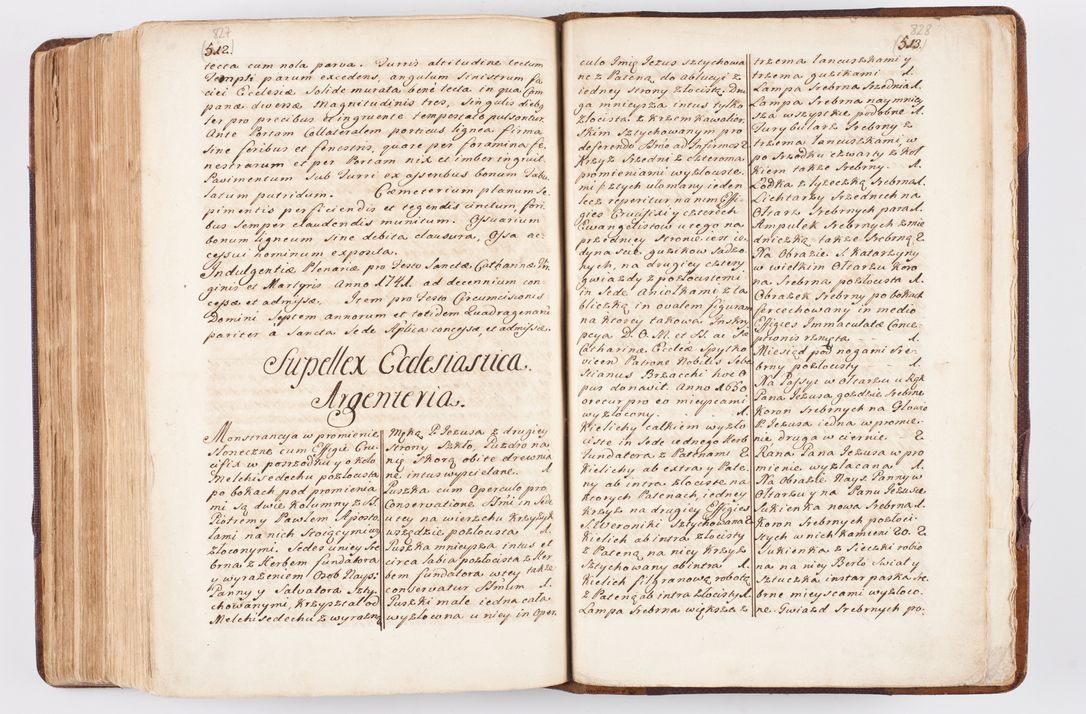 827
(512.)
tecta cum nola parva. Turris altitudine tectum
Templi parum excedens, angulum sinistrum fa
ciei Ecclesiæ solide murata bene tecta in qua Cam
panæ diversæ Magnitudinis tres, singulis dieb9
ter pro precibus et ingruente tempestate pulsantur.
Ante Portam Collateralem porticus lignea firma
sine foribus et fenestris, quare per foramina fe
nestrarum et per Portam nix et imber ingruit.
Pavimentum sub Turri ex asseribus bonum Tabu
latum putridum. Cæmeterium planum se
pimentis perficiendis et tegendis cinctum, fori
bus semper claudendis munitum. Ossuarium
bonum ligneum sine debita clausura, Ossa ac
cessui hominum exposita.
Indulgentiæ Plenariæ pro Festo Sanctæ Catharinæ Vir
ginis et Martyris Anno 1741. ad decennium con
cessæ et admissæ. Item pro Festo Circumcisionis
Domini septem annorum et totidem Quadragenaris
pariter a Sancta Sede Aplica concessæ et admissæ.
Supellex Ecclesiastica.
Argenteria.
Monstrancya w promienie
słoneczne cum Effigie Cru
cifix w posrzodku y około
Melchisedechu pozłocista
po bokach pod promienia
mi są dwie kolumny z SS.
Piotrem y Pawłem Aposto
łami na nich stoiącymi wy
złoconymi. Sedes u niey sre
brna z Herbem fundatora
y wyrażeniem Osob Nayś:
Panny y Salvatora szty
chowanymi, krzyształ od
Melchisedechu z wyrażną
Męką P. Jezusa z drugiey
strony szkło, Puzdro na
nię skorą obite drewnia
ne, intus wyscielane. 1.
Puszka cum Operculo pro
Conservatione SSmi in Sede
u tey na wierzchu krzyżyk
wszędzie pozłocista 1.
Puszka mnieysza intus et
circa labia pozłocista z Her
bem fundatora w tey także
conservatur SSmum 1.
Puszki małe iedna cała
wyzłocona u niey in Oper,
828
(513.)
culo Imię Jezus sztychowa
ne z Pateną do ablucyi z
iedney strony złocistą. Dru
ga mnieysza intus tylko
złocista z krzem kawaler
skim sztychowanym pro
deferendo SSmo ad Infirmos 2.
Krzyż srzedni z czterema
promieniami wyzłociste
mi sztych ułomany ieden
lecz reperitur na nim Effi
gies Crucifixi y czterech
Ewangelistow u tego na
przedniey stronie iest ie
dynascie guzikow sadzo
nych, na drugiey cztery
gwiazdy z pozłocistemi
in Sede Aniołkami z ta
bliczką in ovalem figuram
na ktorey takowa Inskry
pcya D. O. M. et B. ac S.
Catharinæ Eccliæ Spytko
vicen Patronæ Nobilis Seba
stianus Brzacchi hoc O
pus donavit. Anno 1650
srecur pro eo mieyscami
wyzłocony. 1.
Kielichy całkiem wyzło
ciste in Sede iednego Herb
fundatora z Patenami 2.
Kielichy ab extra y Pate,
ny ab intra złociste na
ktorych Patenach, iedney
krzyż na drugiey Effigies
S. Weroniki sztychowana 2.
Kielich ab intra złocisty
z Pateną na niey krzyż
sztychowany ab intra 1.
Kielich filigranową robotą
z Pateną ab intra złocisty 1.
Lampa srebrna większa z
trzema łancuszkami y
trzema guzikami 1.
Lampa srebrna srzednia 1.
Lampa srebrna naymniey
sza wszystkie podobne 1.
Turybularz srebrny z
trzema łancuszkami, w
po srzodku czwarty z koł
kiem także srebrny. 1.
Łodka z łyżeczką srebrna 1.
Lichtarzy srzednich na
Ołtarz srebrnych para 1.
Ampułek srebrnych z mie
dniczką także srebrną 2.
Na Obrazie S. Katarzyny
w wielkim Ołtarzu koro
na srebrna pozłocista 1.
Obrazek srebrny po bokach
sercechowany in medio
Effigies Immaculatæ Conce
ptionis rznięta 1.
Miesiąc pod nogami sre
brny pozłocisty 1.
Na Passyi w Ołtarzu u Rąk
Pana Jezusa gozdzie srebrne
Koron srebrnych na Głowie
P. Jezusa iedna w promie
nie druga w ciernie. 2.
Rana Pana Jezusa w pro
mienie wyzłacana 1.
Na Obrazie Nayś. Panny w
Ołtarzu y na Panu Jezusie
sukienka nowa srebrna 1.
Koron srebrnych pozłoci
stych w nich kamieni 20. 2.
Sukienka z sieczki robio
na na niey Berło swiat y
sztuczka instar paska sre
brne mieyscami wyzłoco
ne. Gwiazd srebrnych po,